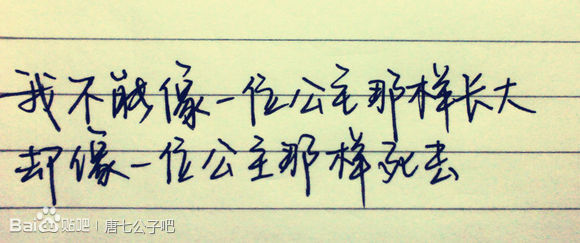 我不能像一位公主那样长大
却像一位公主那样死去
Bai贴吧 | 唐七公子吧